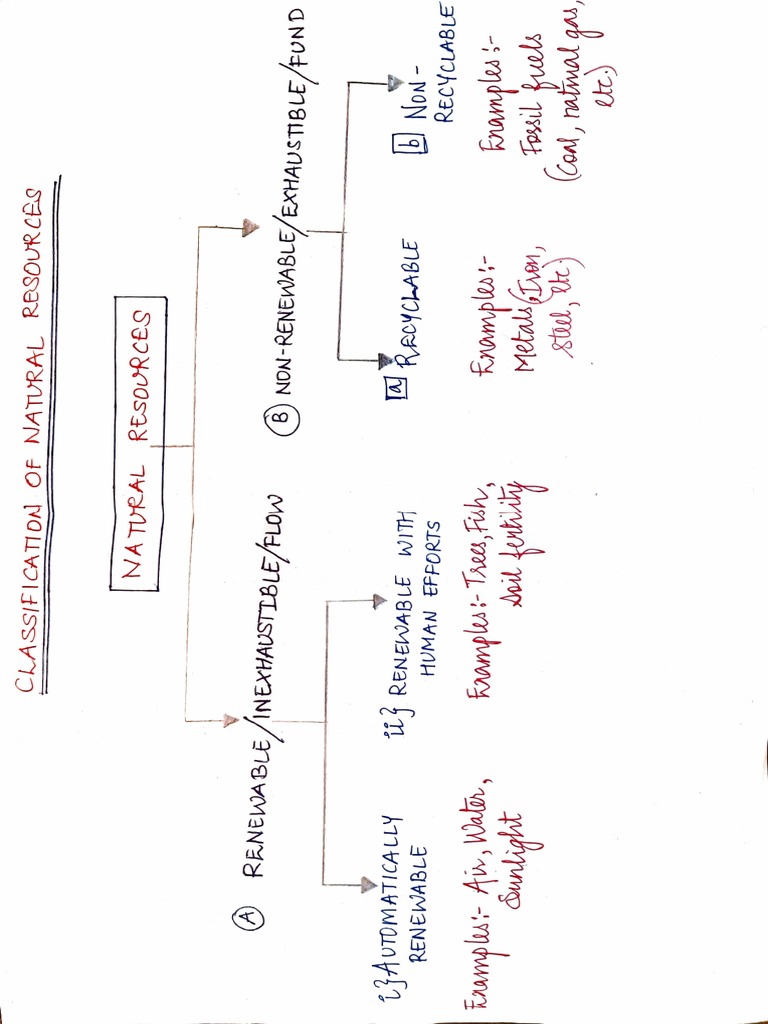 CLASSIFICATION OF NATURAL RESOURCES
NATURAL RESOURCES
A RENEWABLE/INEXHAUSTIBLE/FLOW
i} AUTOMATICALLY
RENEWABLE
Examples:- Air, Water,
Sunlight
ii} RENEWABLE WITH
HUMAN EFFORTS
Examples:- Trees, Fish,
soil fertility
B NON-RENEWABLE/EXHAUSTIBLE/FUND
a RECYCLABLE
Examples:-
Metals (Iron,
steel, etc.)
b NON-
RECYCLABLE
Examples:-
Fossil fuels
(coal, natural gas,
etc.)